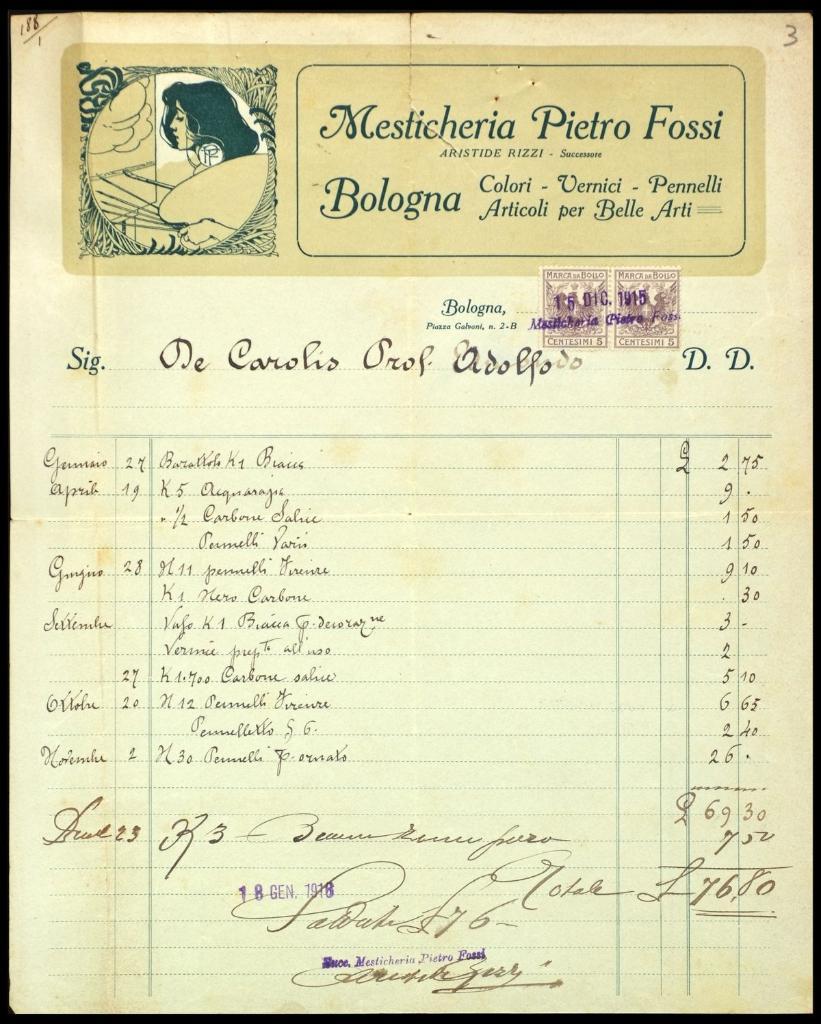 188/1
3
Mesticheria Pietro Fossi
ARISTIDE RIZZI - Successore
Bologna
Colori - Vernici - Pennelli
Articoli per Belle Arti
MARCA DA BOLLO MARCA DA BOLLO
15 DIC. 1915
Mesticheria Pietro Fossi
CENTESIMI 5 CENTESIMI 5
Bologna,
Piazza Galvani, n. 2-B
Sig. De Carolis Prof. Adolfo D. D.
Gennaio 27 Barattolo K1 Biacca £ 2 75
Aprile 19 K 5 Acquaragia 9 .
" 1/2 Carbone Salice 1 50
Pennelli Varii 1 50
Giugno 28 N 11 pennelli Firenze 9 10
K1 Nero Carbone . 30
Settembre Vaso K 1 Biacca p. decorazne 3 -
Vernice prepta all'uso 2
27 K 1.700 Carbone salice 5 10
Ottobre 20 N 12 Pennelli Firenze 6 65
Pennelletto § 6. 2 40
Novembre 2 N 30 Pennelli p. ornato 26 .
£ 69 30
23 K 3 7 50
Totale £ 76,80
18 GEN. 1916
Saldato £ 76 -
Succ. Mesticheria Pietro Fossi
Aristide Rizzi